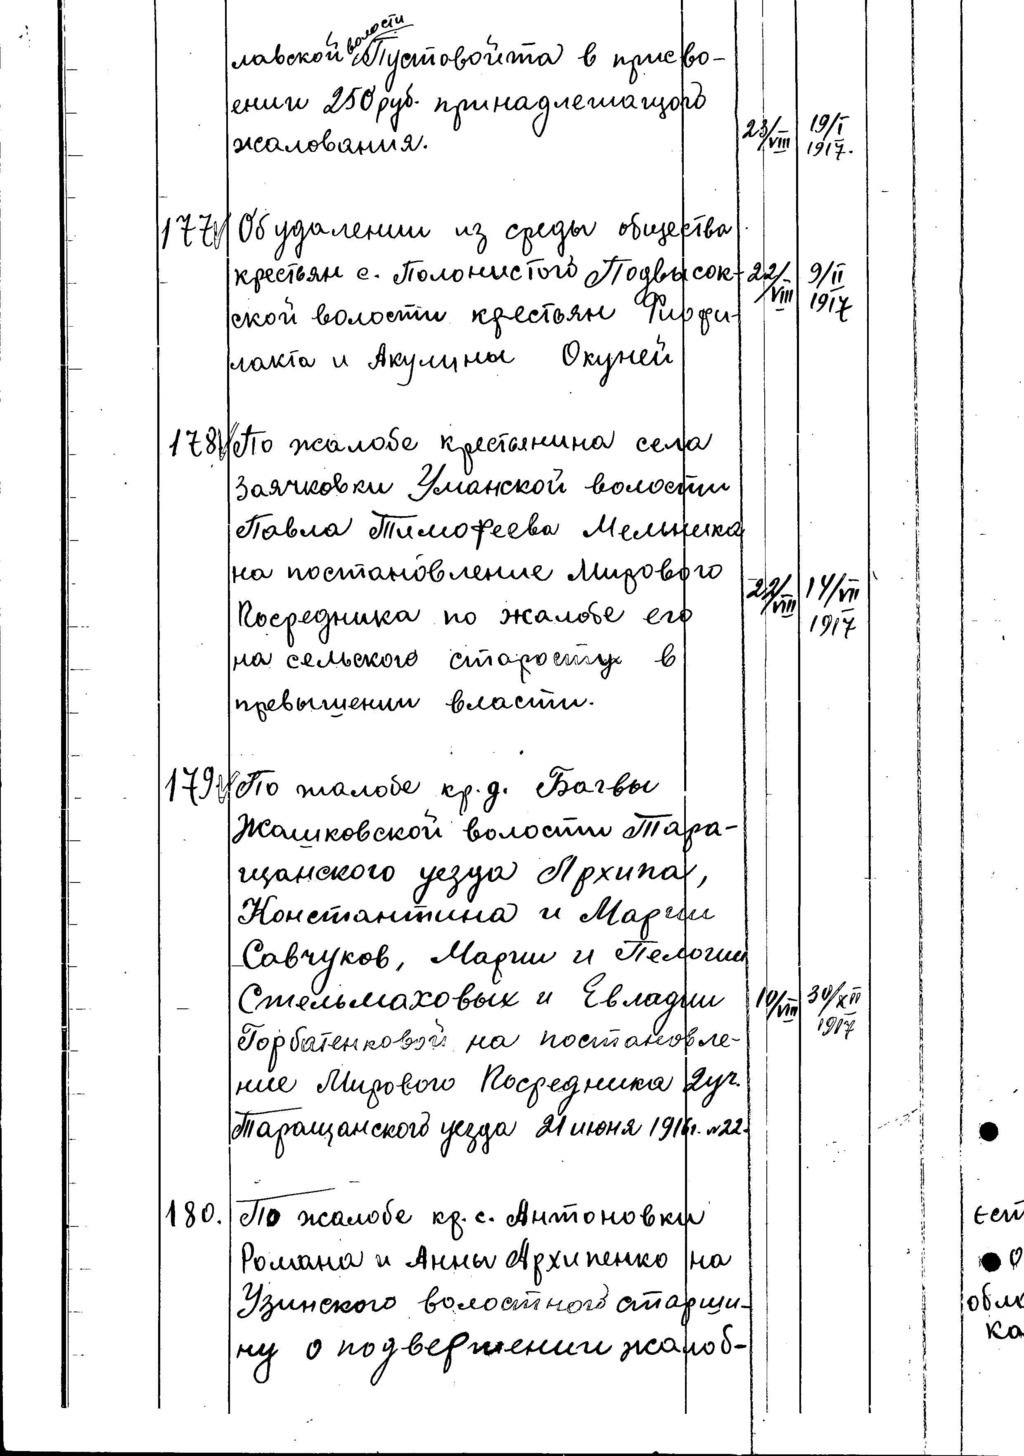 волости
лавской Пустовойта в присво-
ении 250 руб. принадлежащого
жалования.
23/VIII 19/I 1917.
177 Об удалении из среды общества
крестьян с. Полонистого Подвысок-
22/VIII 9/II 1917
ской волости крестьян Фиофи-
лакта и Акулины Окуней
178 По жалобе крестьянина села
Заячковки Уманской волости
Павла Тимофеева Мельника
на постановление Мирового
22/VIII 14/VII 1917
Посредника по жалобе его
на сельского старосту в
превышении власти.
179 По жалобе кр. д. Багвы
Жашковской волости Тара-
щанского уезда Архипа,
Константина и Марии
Савчуков, Марии и Пелогии
Стельмаховых и Евладии
10/VIII 30/XII 1917
Горбатенковой на постановле-
ние Мирового Посредника 2 уч.
Таращанского уезда 21 июня 1916 г. № 22.
180. По жалобе кр. с. Антоновки
Романа и Анны Архипенко на
Узинского волостного старши-
ну о подвержении жалоб-
ест
о
обл
ка